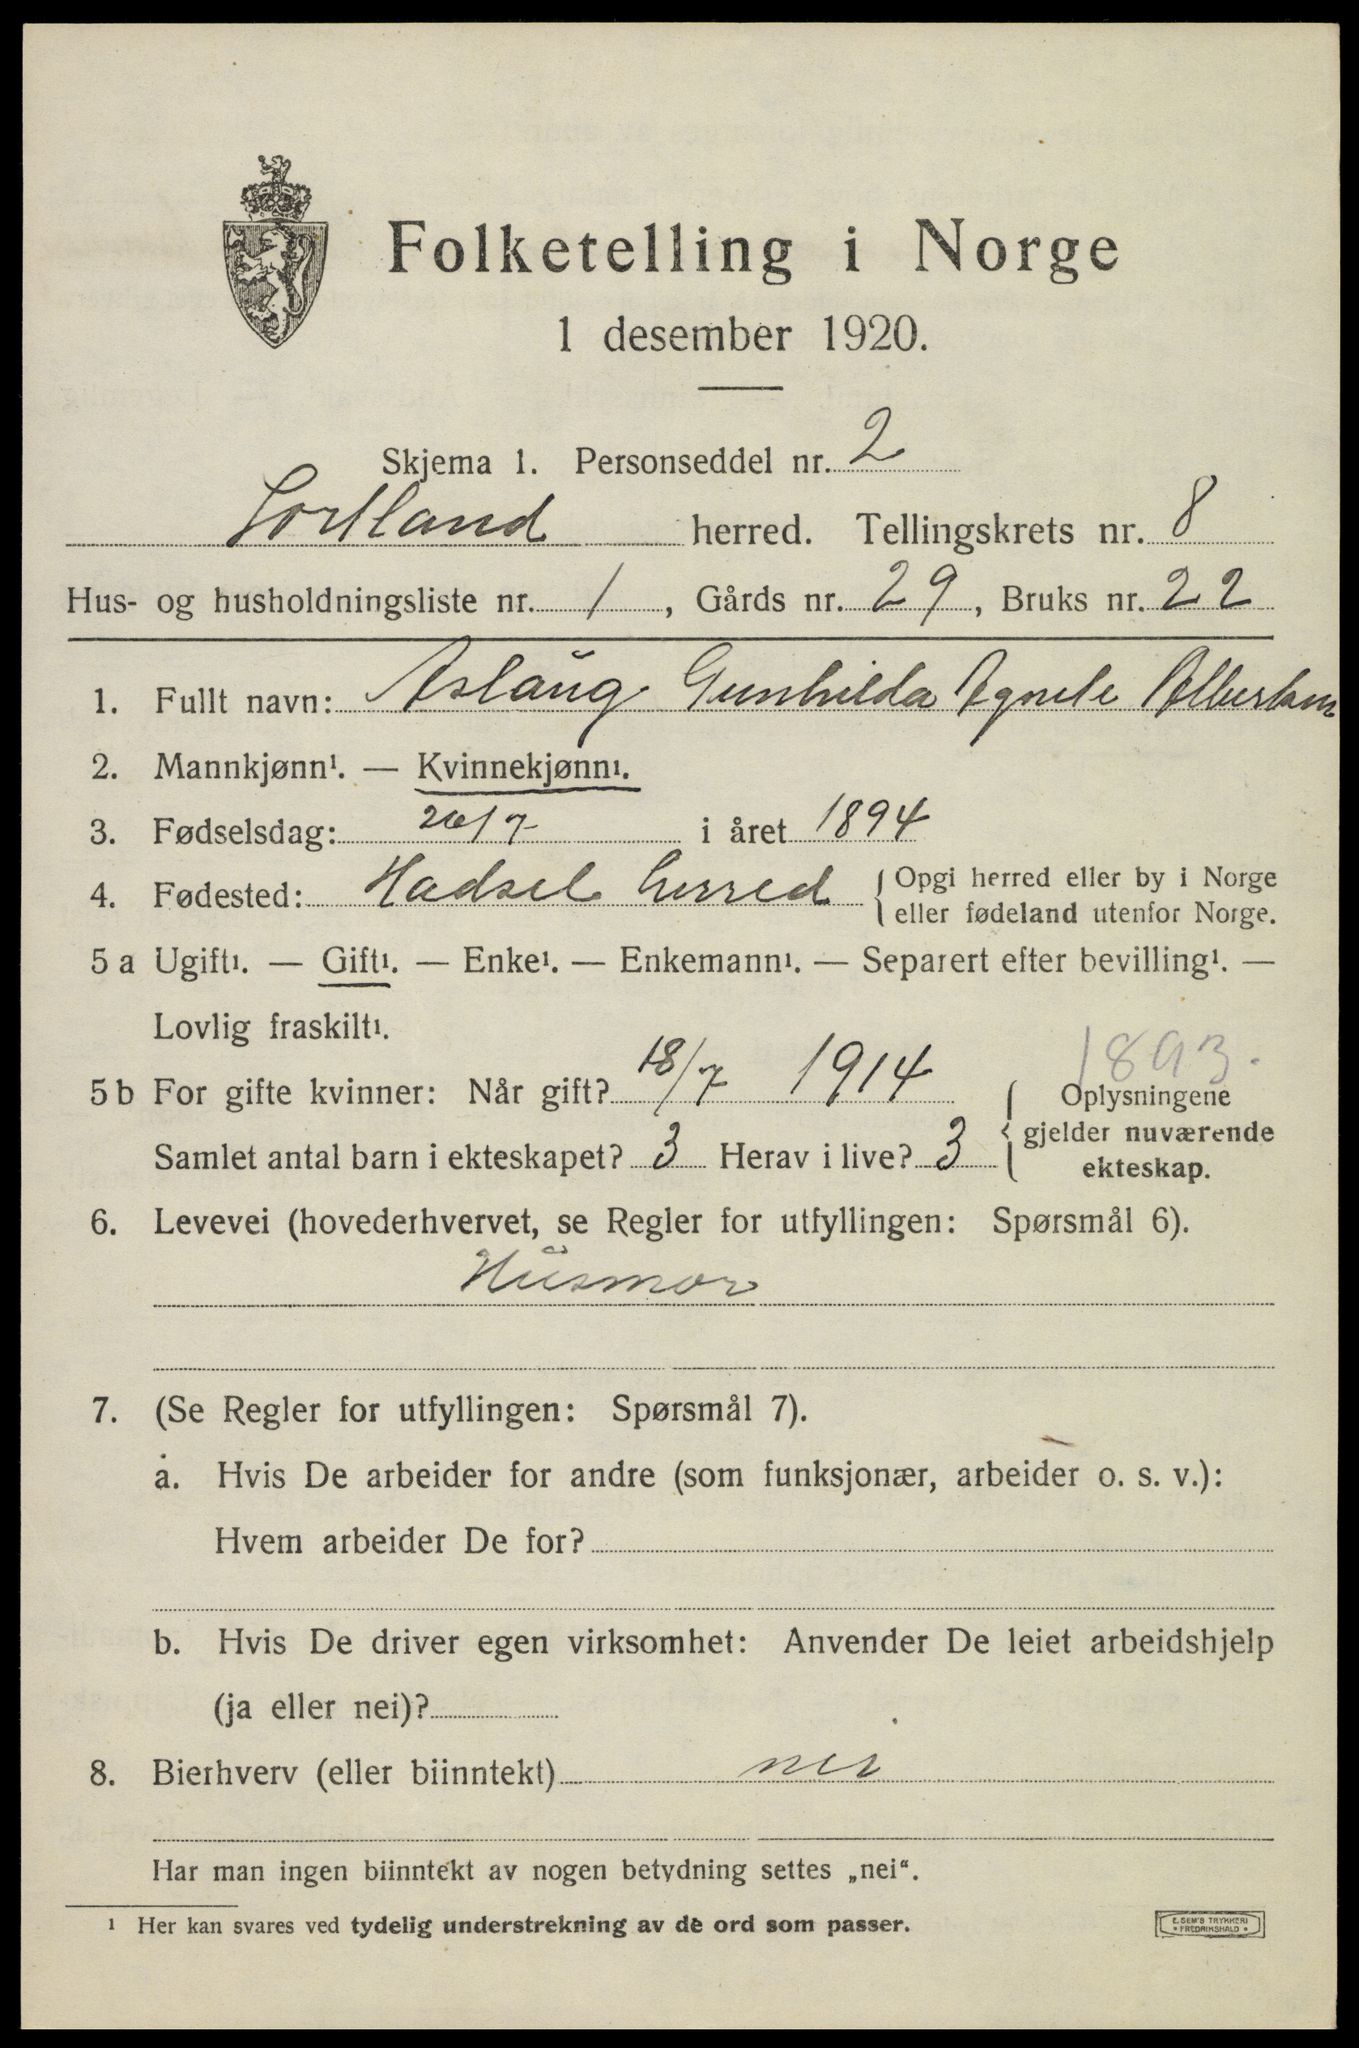 Folketelling i Norge
1 desember 1920.
Skjema 1. Personseddel nr. 2
Sortland herred. Tellingskrets nr. 8
Hus- og husholdningsliste nr. 1, Gårds nr. 29, Bruks nr. 22
1. Fullt navn: Aslaug Gunhilda Agnete Albertsen
2. Mannkjønn¹. — Kvinnekjønn¹.
3. Fødselsdag: 26/7 i året 1894
4. Fødested: Hadsel herred { Opgi herred eller by i Norge
eller fødeland utenfor Norge.
5 a Ugift¹. — Gift¹. — Enke¹. — Enkemann¹. — Separert efter bevilling¹. —
Lovlig fraskilt¹.
1893.
5 b For gifte kvinner: Når gift? 18/7 1914 { Oplysningene
gjelder nuværende
Samlet antal barn i ekteskapet? 3 Herav i live? 3 ekteskap.
6. Levevei (hovederhvervet, se Regler for utfyllingen: Spørsmål 6).
Husmor
7. (Se Regler for utfyllingen: Spørsmål 7).
a. Hvis De arbeider for andre (som funksjonær, arbeider o. s. v.):
Hvem arbeider De for?
b. Hvis De driver egen virksomhet: Anvender De leiet arbeidshjelp
(ja eller nei)?
8. Bierhverv (eller biinntekt) nei
Har man ingen biinntekt av nogen betydning settes „nei“.
¹ Her kan svares ved tydelig understrekning av de ord som passer.
E. SEM'S TRYKKERI
• FREDRIKSHALD •